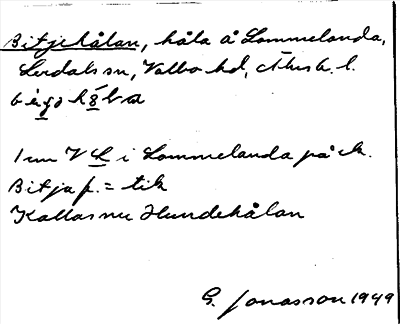 Bitjehålan, håla å Lommelanda,
Lerdals sn, Valbo hd, Älvsb. l.
1 cm V i Lommelanda på ek.
Bitja f. = tik
Kallas nu Hundehålan
G. Jonasson 1949